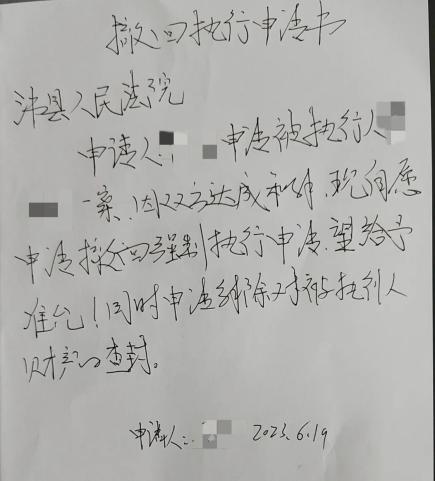 撤回执行申请书
沛县人民法院
申请人: 申请被执行人
一案,因双方达成和解,现自愿
申请撤回强制执行申请,望给予
准允!同时申请解除对被执行人
财产的查封。
申请人: 2023.6.19